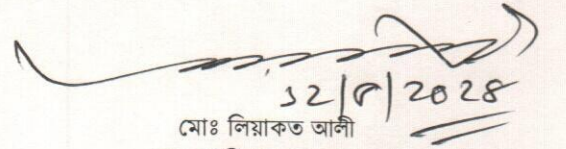 ১২|৫|২০২৪
মোঃ লিয়াকত আলী